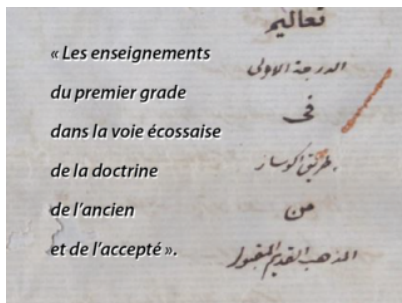 « Les enseignements
du premier grade
dans la voie écossaise
de la doctrine
de l'ancien
et de l'accepté ».
تعاليم
الدرجة الاولى
فى
طريق اكوسار
من
المذهب القديم المقبول